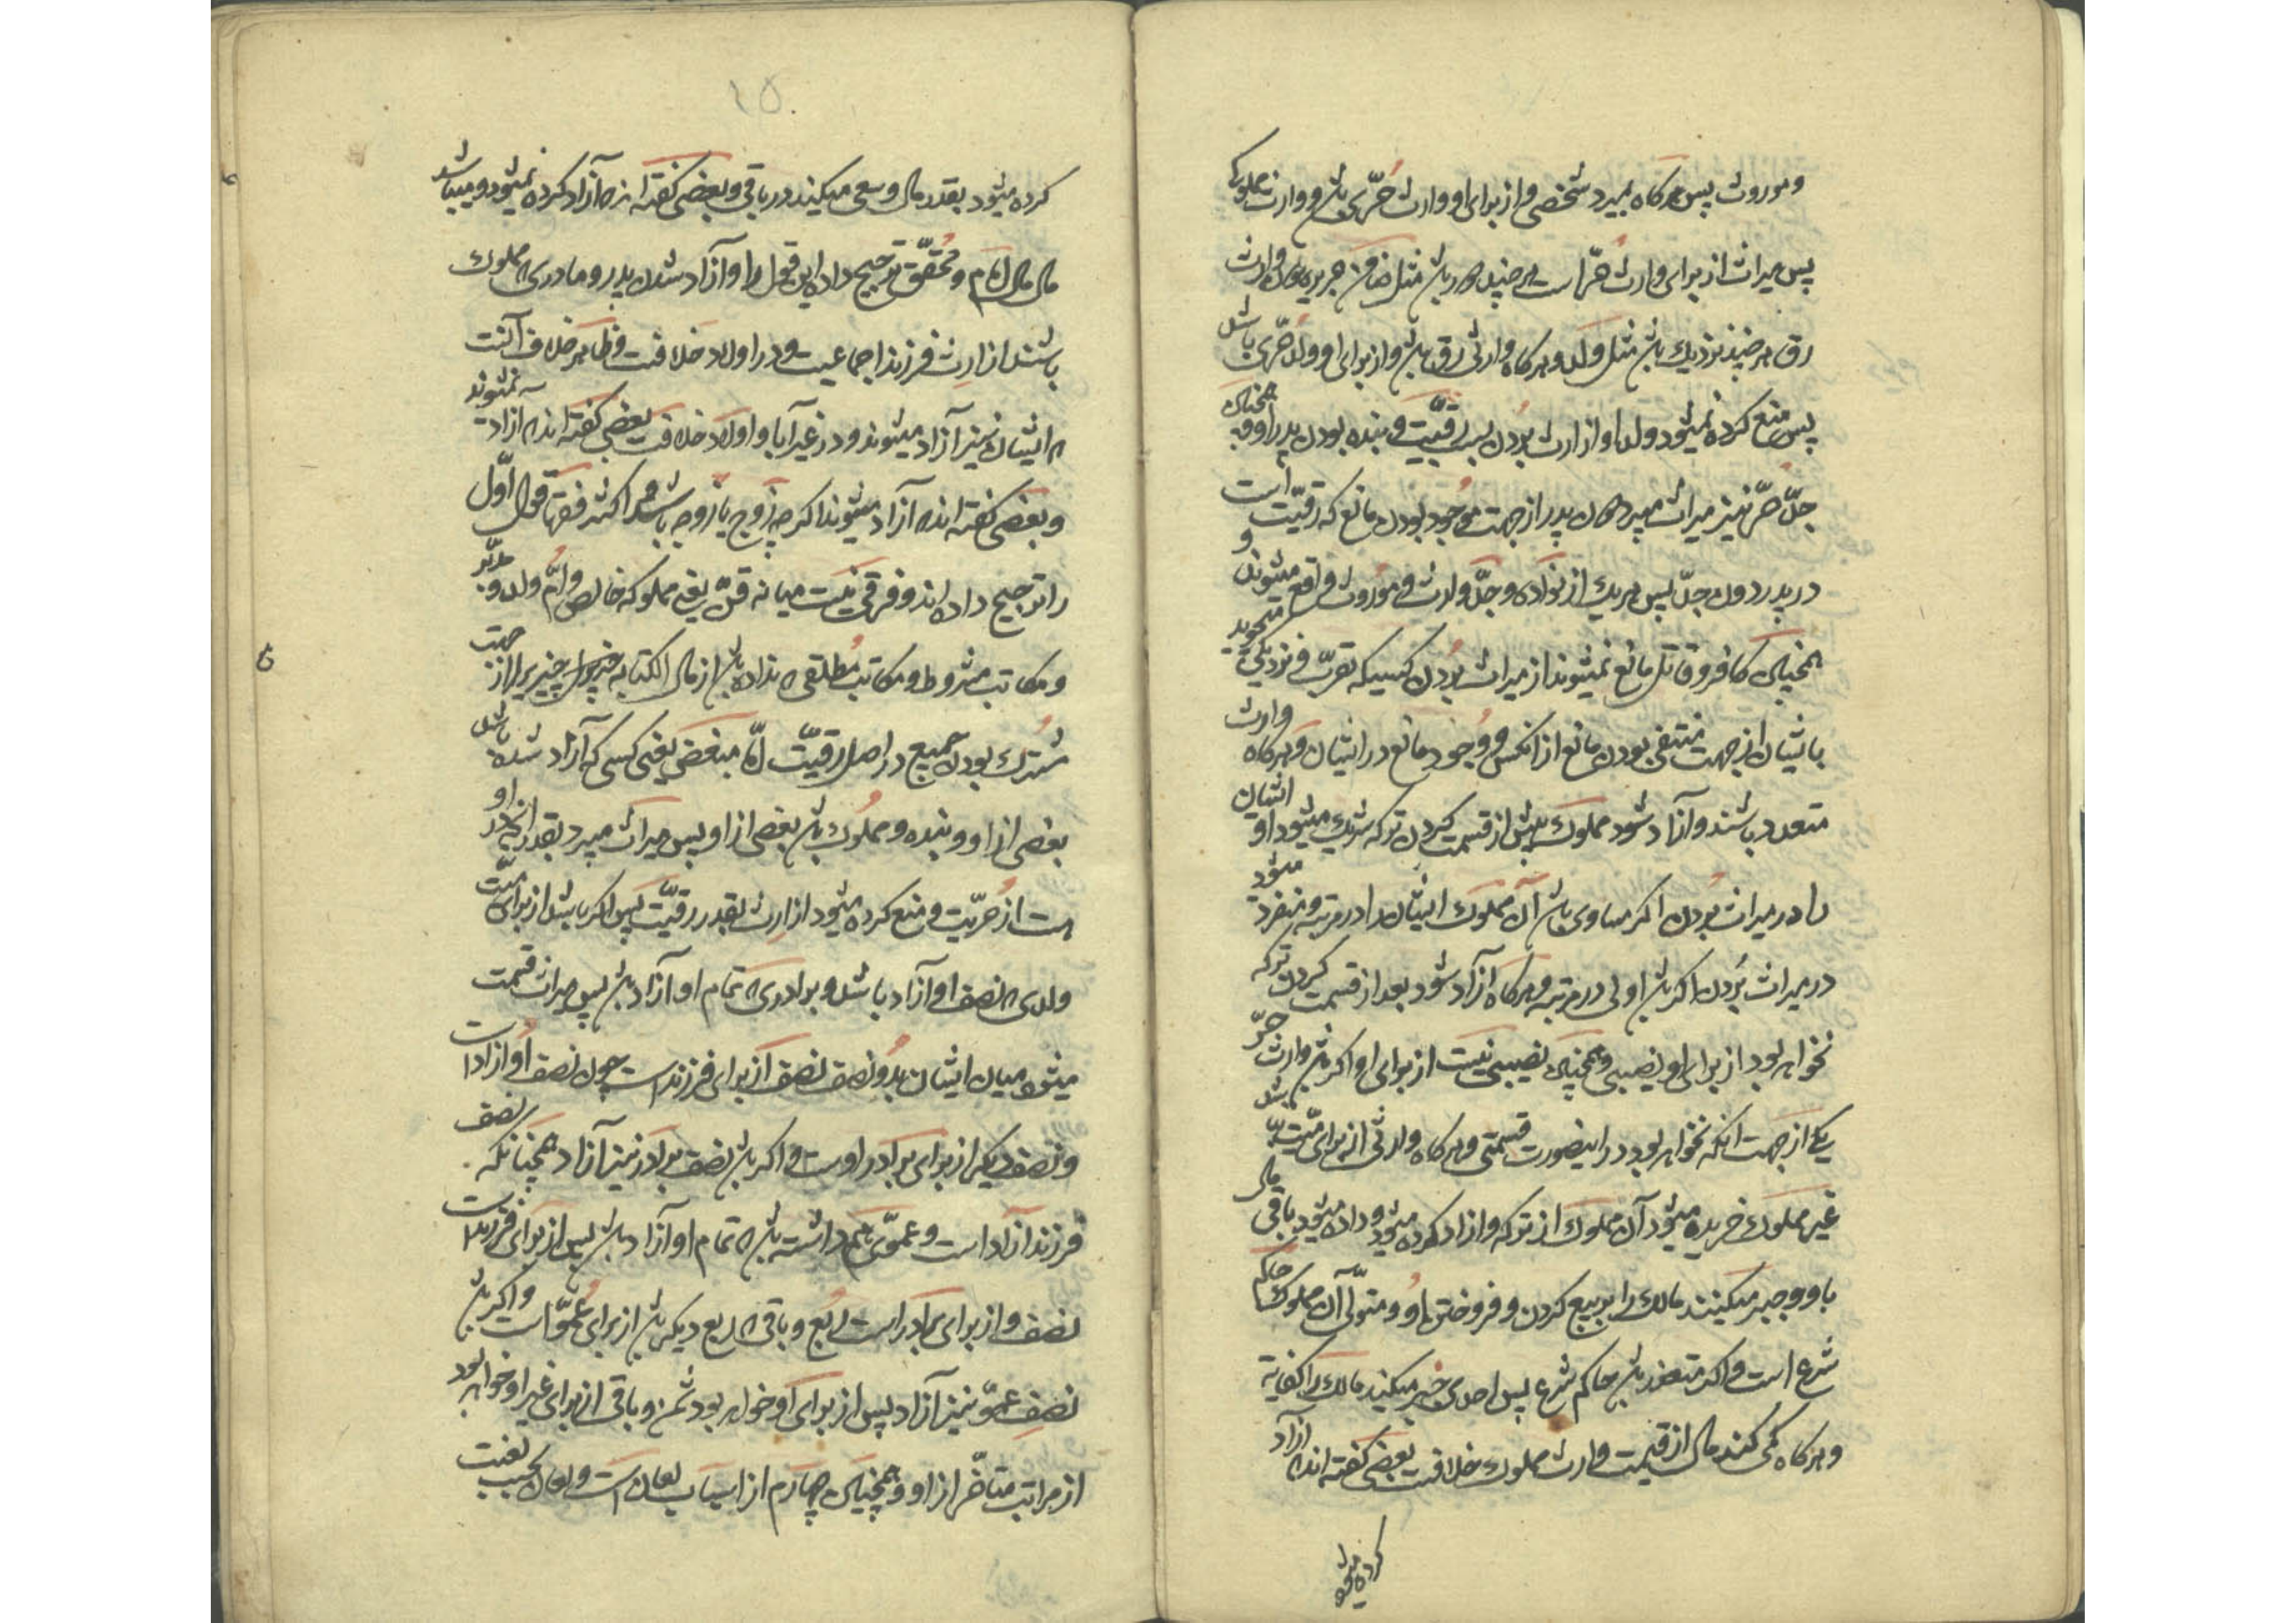 وموروث پس هرکاه بمیرد شخصی و از برای او وارث حُرّی باشد و وارث مملوکی
پس میراث از برای وارث حرّ است هر چند دور باشد مثل ضامن جریره نه وارث
رق هر چند نزدیک باشد مثل ولد و هرکاه وارثی رق باشد و از برای او ولد حرّی باشد
پس منع کرده نمیشود ولد او از ارث بُردن بسبب رقیّت و بنده بودن پدر او و همچنان
جدّ حرّ نیز میراث میبرد نه ان پدر از جهت موجود بودن مانع که رقیّت است
در پدر دون جدّ پس هر یک از نواده و جدّ وارث و موروث واقع میشوند و
همچنان کافر و قاتل مانع نمیشوند از میراث بُردن کسیکه تقرّب و نزدیکی میجوید
بایشان از جهت منتفی بودن مانع از انکس و وُجود مانع در ایشان و هرکاه وارث
متعدد باشند و آزاد شود مملوک پیش از قسمت کردن ترکه شریک میشود او ایشان
را در میراث بُردن اکر مساوی باشد آن مملوک ایشان را در مرتبه و منفرد میشود
در میراث بُردن اکر باشد اولی در مرتبه و هرکاه آزاد شود بعد از قسمت کردن ترکه
نخواهد بود از برای او نصیبی و همچنان نصیبی نیست از برای او اکر باشد وارث حرّ
یکی از جهت انکه نخواهد بود در اینصورت قسمتی و هرکاه وارثی از برای میّت نباشد
غیر مملوک خریده میشود آن مملوک از ترکه و ازاد کرده میشود و داده میشود باقی مال
باو و جبر میکنند مالک را بر بیع کردن و فروختن او و متولّی آن مملوک حاکم
شرع است و اکر متعذر باشد حاکم شرع پس احدی جبر میکند مالک را کفایة
و هرکاه کمی کند مال از قیمت وارث مملوک خلافست بعضی کفته اند که ازاد
کرده میشود
۱۵
کرده میشود بقدر مال و سعی میکند در باقی و بعضی کفته اند که آزاد کرده نمیشود و میباشد
مال مال امام و محقّق ترجیح داده این قول را و آزاد شدن پدر و مادری که مملوک
باشند از ارث فرزند اجماعیست و در اولاد خلافست و ظاهر خلاف آنست
که ایشان نیز آزاد میشوند و در غیر آبا و اولاد خلافست بعضی کفته اند که ازاد نمیشوند
و بعضی کفته اند که آزاد میشوند اکرچه زوج یا زوجه باشد و اکثر فقها قول اوّل
را ترجیح داده اند و فرقی نیست میانه قنّ یعنی مملوکه خالص و امّ ولد و مدبّر
و مکاتب مشروط و مکاتب مطلقی که نداده باشد از مال الکتابه چیزیرا از جهت
مشترک بودن جمیع در اصل رقیّت امّا مبعّض یعنی کسی که آزاد شده باشد
بعضی از او و بنده و مملوک باشد بعضی از او پس میراث میبرد بقدر انچه در او
هست از حرّیّت و منع کرده میشود از ارث بقدر رقیّت پس اکر باشد از برای میّت
ولدی که نصف او آزاد باشد و برادری که تمام او آزاد باشد پس میراث قسمت
میشود میان ایشان بدو نصف نصف از برای فرزند است چون نصف او ازاد است
و نصف دیکر از برای برادر اوست و اکر باشد نصف برادر نیز آزاد همچنانکه نصف
فرزند آزاد است و عمّوی هم داشته باشد که تمام او آزاد باشد پس از برای فرزند است
نصف و از برای برادر است ربع و باقی که ربع دیکر باشد از برای عمّو است و اکر باشد
نصف عمّو نیز آزاد پس از برای او خواهد بود ثمن و باقی از برای غیر او خواهد بود
از مراتب متاخّر از او و همچنان چهارم از اسباب لعان است و لعان بحسب لغت